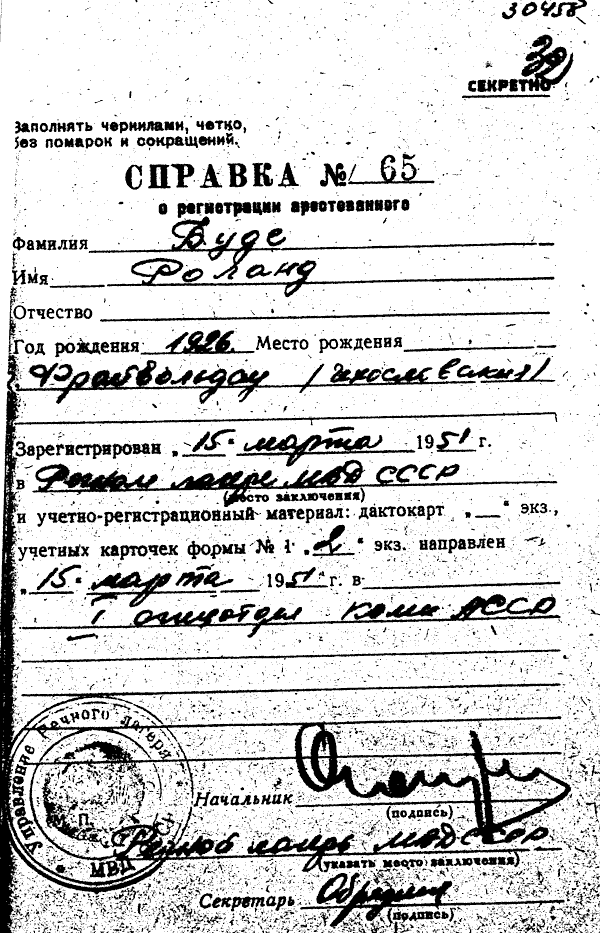 30458
39
СЕКРЕТНО
Заполнять чернилами, четко,
без помарок и сокращений.
СПРАВКА № 65
о регистрации арестованного
Фамилия Буде
Имя Роланд
Отчество
Год рождения 1926. Место рождения
Фрайвольдау /Чехословакия/
Зарегистрирован „15" марта 1951 г.
в Речном лагере МВД СССР
(место заключения)
и учетно-регистрационный материал: дактокарт „__" экз.,
учетных карточек формы № 1 „2" экз. направлен
„15" марта 1951 г. в
I спецотдел Коми АССР
Управление Речного лагеря
М. П.
МВД
Начальник
(подпись)
Речной лагерь МВД СССР
(указать место заключения)
Секретарь
(подпись)